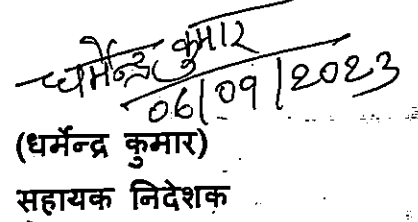 धर्मेन्द्र कुमार
06/09/2023
(धर्मेन्द्र कुमार)
सहायक निदेशक